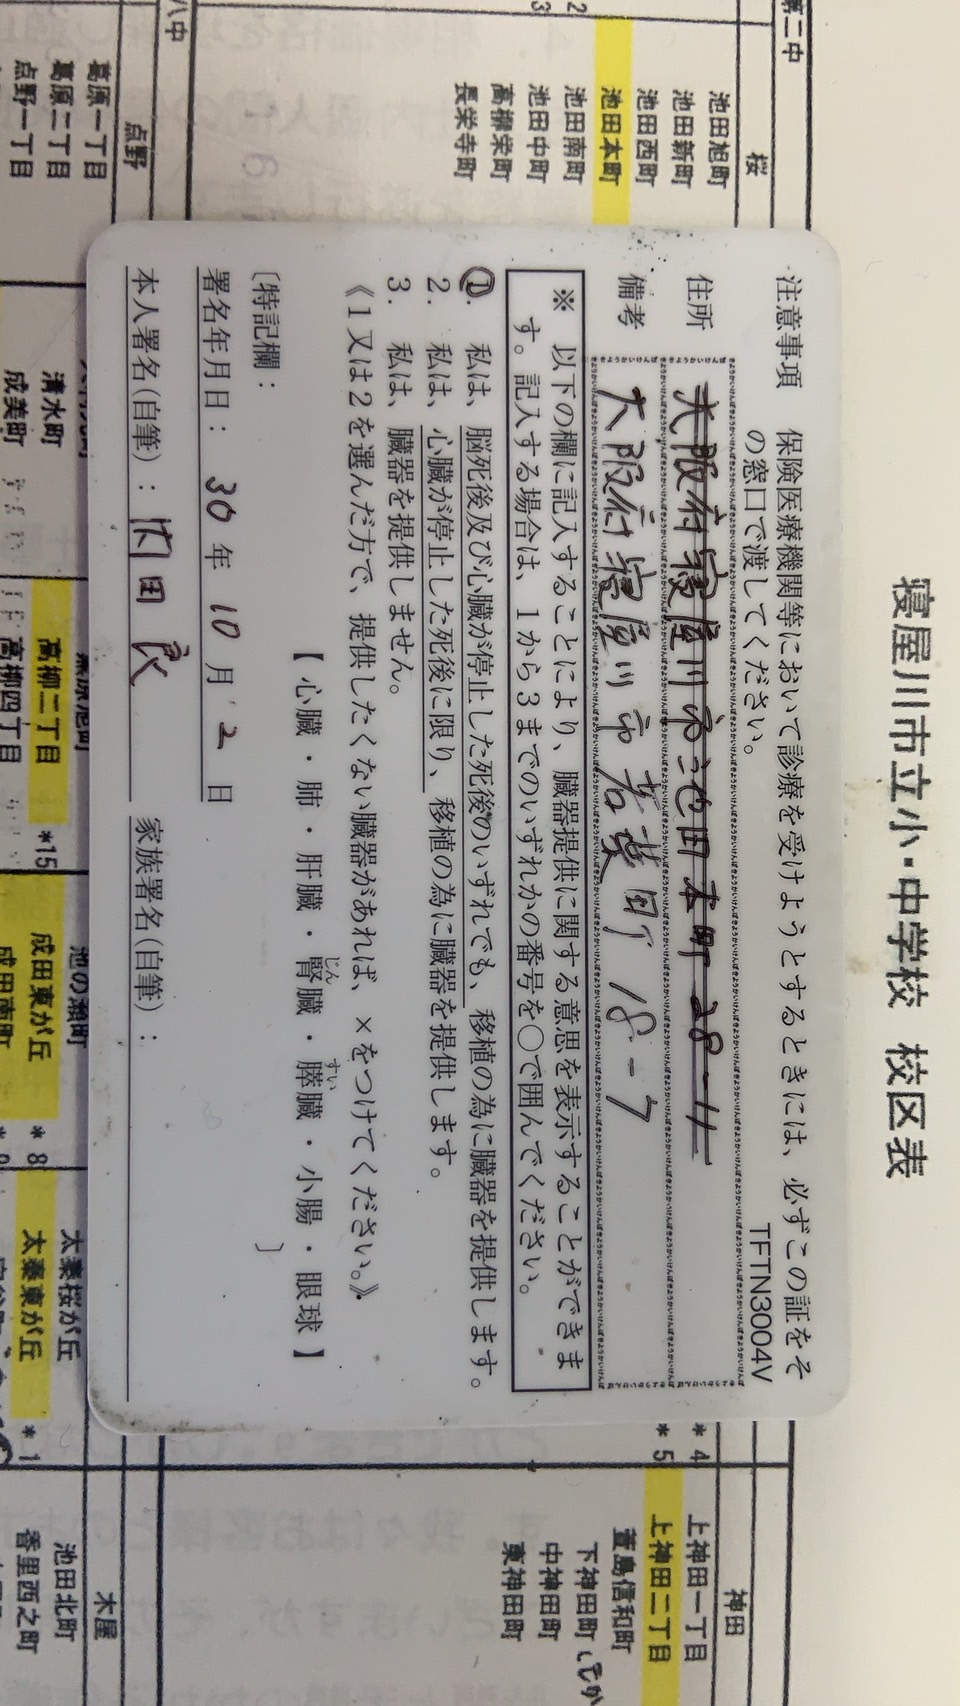 寝屋川市立小・中学校 校区表
第二中
桜
池田旭町
池田新町
池田西町
池田本町
池田南町
池田中町
高柳栄町
長栄寺町
2
3
八中
点野
葛原一丁目
葛原二丁目
点野一丁目
注意事項 保険医療機関等において診療を受けようとするときには、必ずこの証をそ
の窓口で渡してください。
TFTN3004V
住所 大阪府寝屋川市池田本町28-11
備考 大阪府寝屋川市若葉町18-7
※ 以下の欄に記入することにより、臓器提供に関する意思を表示することができま
す。記入する場合は、1から3までのいずれかの番号を〇で囲んでください。
1. 私は、脳死後及び心臓が停止した死後のいずれでも、移植の為に臓器を提供します。
2. 私は、心臓が停止した死後に限り、移植の為に臓器を提供します。
3. 私は、臓器を提供しません。
《1又は2を選んだ方で、提供したくない臓器があれば、×をつけてください。》
【 心臓・肺・肝臓・腎臓・膵臓・小腸・眼球 】
じん
すい
〔特記欄: 〕
署名年月日: 30年10月2日
本人署名(自筆): 田 家族署名(自筆):
清水町
成美町
高柳二丁目
高柳四丁目
*15
池の瀬町
成田東が丘
成田南町
*8
太秦桜が丘
太秦東が丘
*1
*4
*5
神田
上神田一丁目
上神田二丁目
萱島信和町
下神田町
中神田町
東神田町
木屋
池田北町
香里西之町